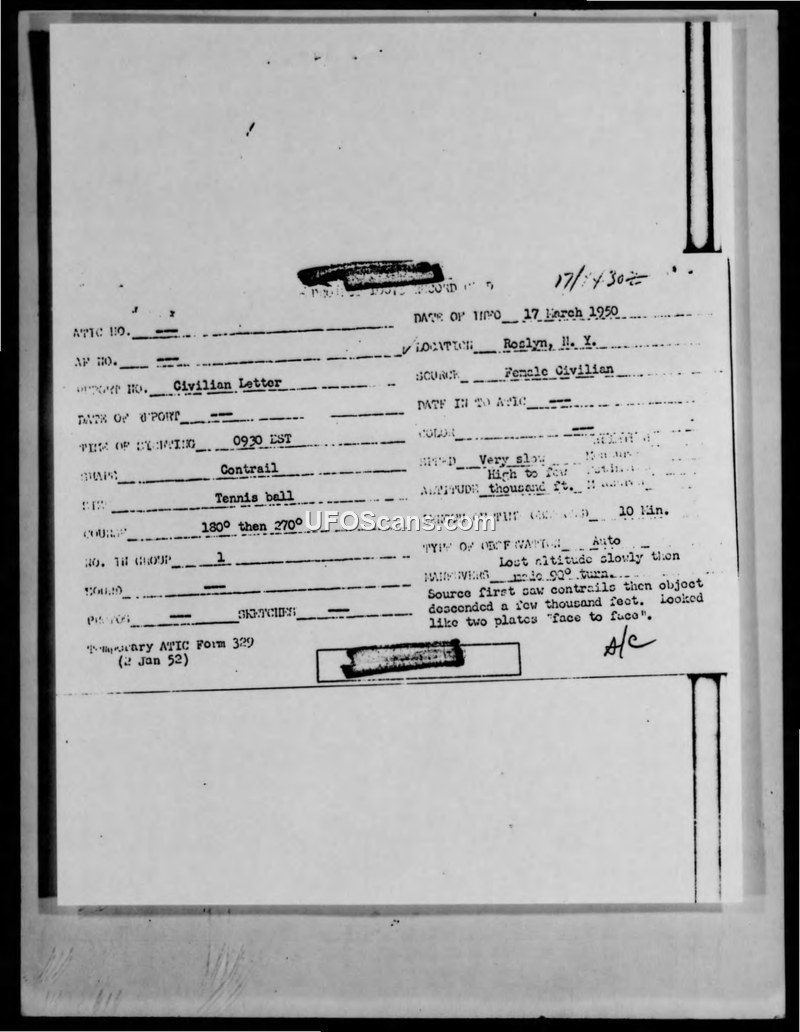 17/1430Z
ATIC NO. --
AF NO. --
REPORT NO. Civilian Letter
DATE OF REPORT --
TIME OF SIGHTING 0930 EST
SHAPE Contrail
SIZE Tennis ball
COURSE 180° then 270°
NO. IN GROUP 1
SOUND --
PHOTOS -- SKETCHES --
Temporary ATIC Form 329
(2 Jan 52)
DATE OF INFO 17 March 1950
LOCATION Roslyn, N. Y.
SOURCE Female Civilian
DATE IN TO ATIC --
COLOR --
SPEED Very slow
High to few
ALTITUDE thousand ft.
10 Min.
TYPE OF OBSERVATION Auto
Lost altitude slowly then
MANEUVERS made 90° turn.
Source first saw contrails then object
descended a few thousand feet. Looked
like two plates "face to face".
A/C
UFOScans.com